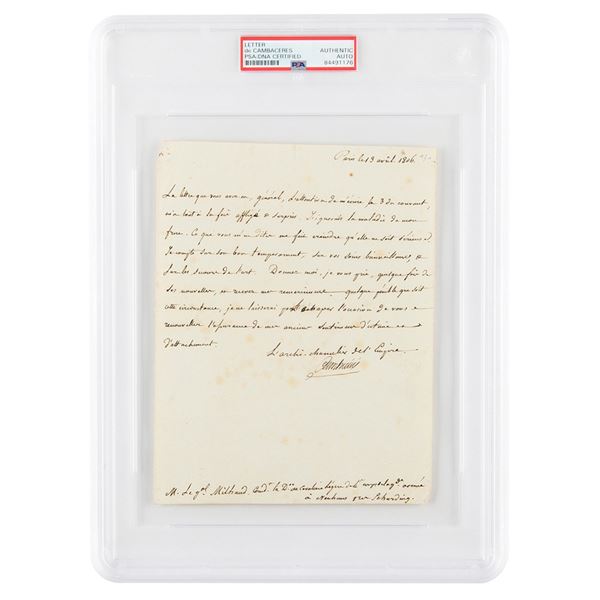 LETTER
de CAMBACERES
PSA/DNA CERTIFIED
AUTHENTIC
AUTO
84491176
PSA
Paris le 13 avril 1806
La lettre que vous avez eu, général, l'attention de m'écrire le 3 du courant,
m'a tout à la fois affligé & surpris. J'ignorais la maladie de mon
frere. Ce que vous m'en dites me fait craindre qu'elle ne soit sérieuse.
Je compte sur son bon temperament, sur vos soins bienveillans, &
sur les secours de l'art. Donnez moi, je vous prie, quelque fois de
ses nouvelles, en recevez mes remercimens. quelque pénible que soit
cette circonstance, je ne laisserai pas échaper l'occasion de vous
renouveller l'assurance de mes anciens sentimens d'estime et
d'attachement.
L'archi-chancelier de l'Empire
Cambacérès
M. Le gal Milhaud, Comdt la Don de Cavalerie légère du corps de la gde armée
à